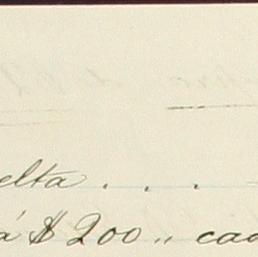 elta . . .
á $ 200 ,, cad